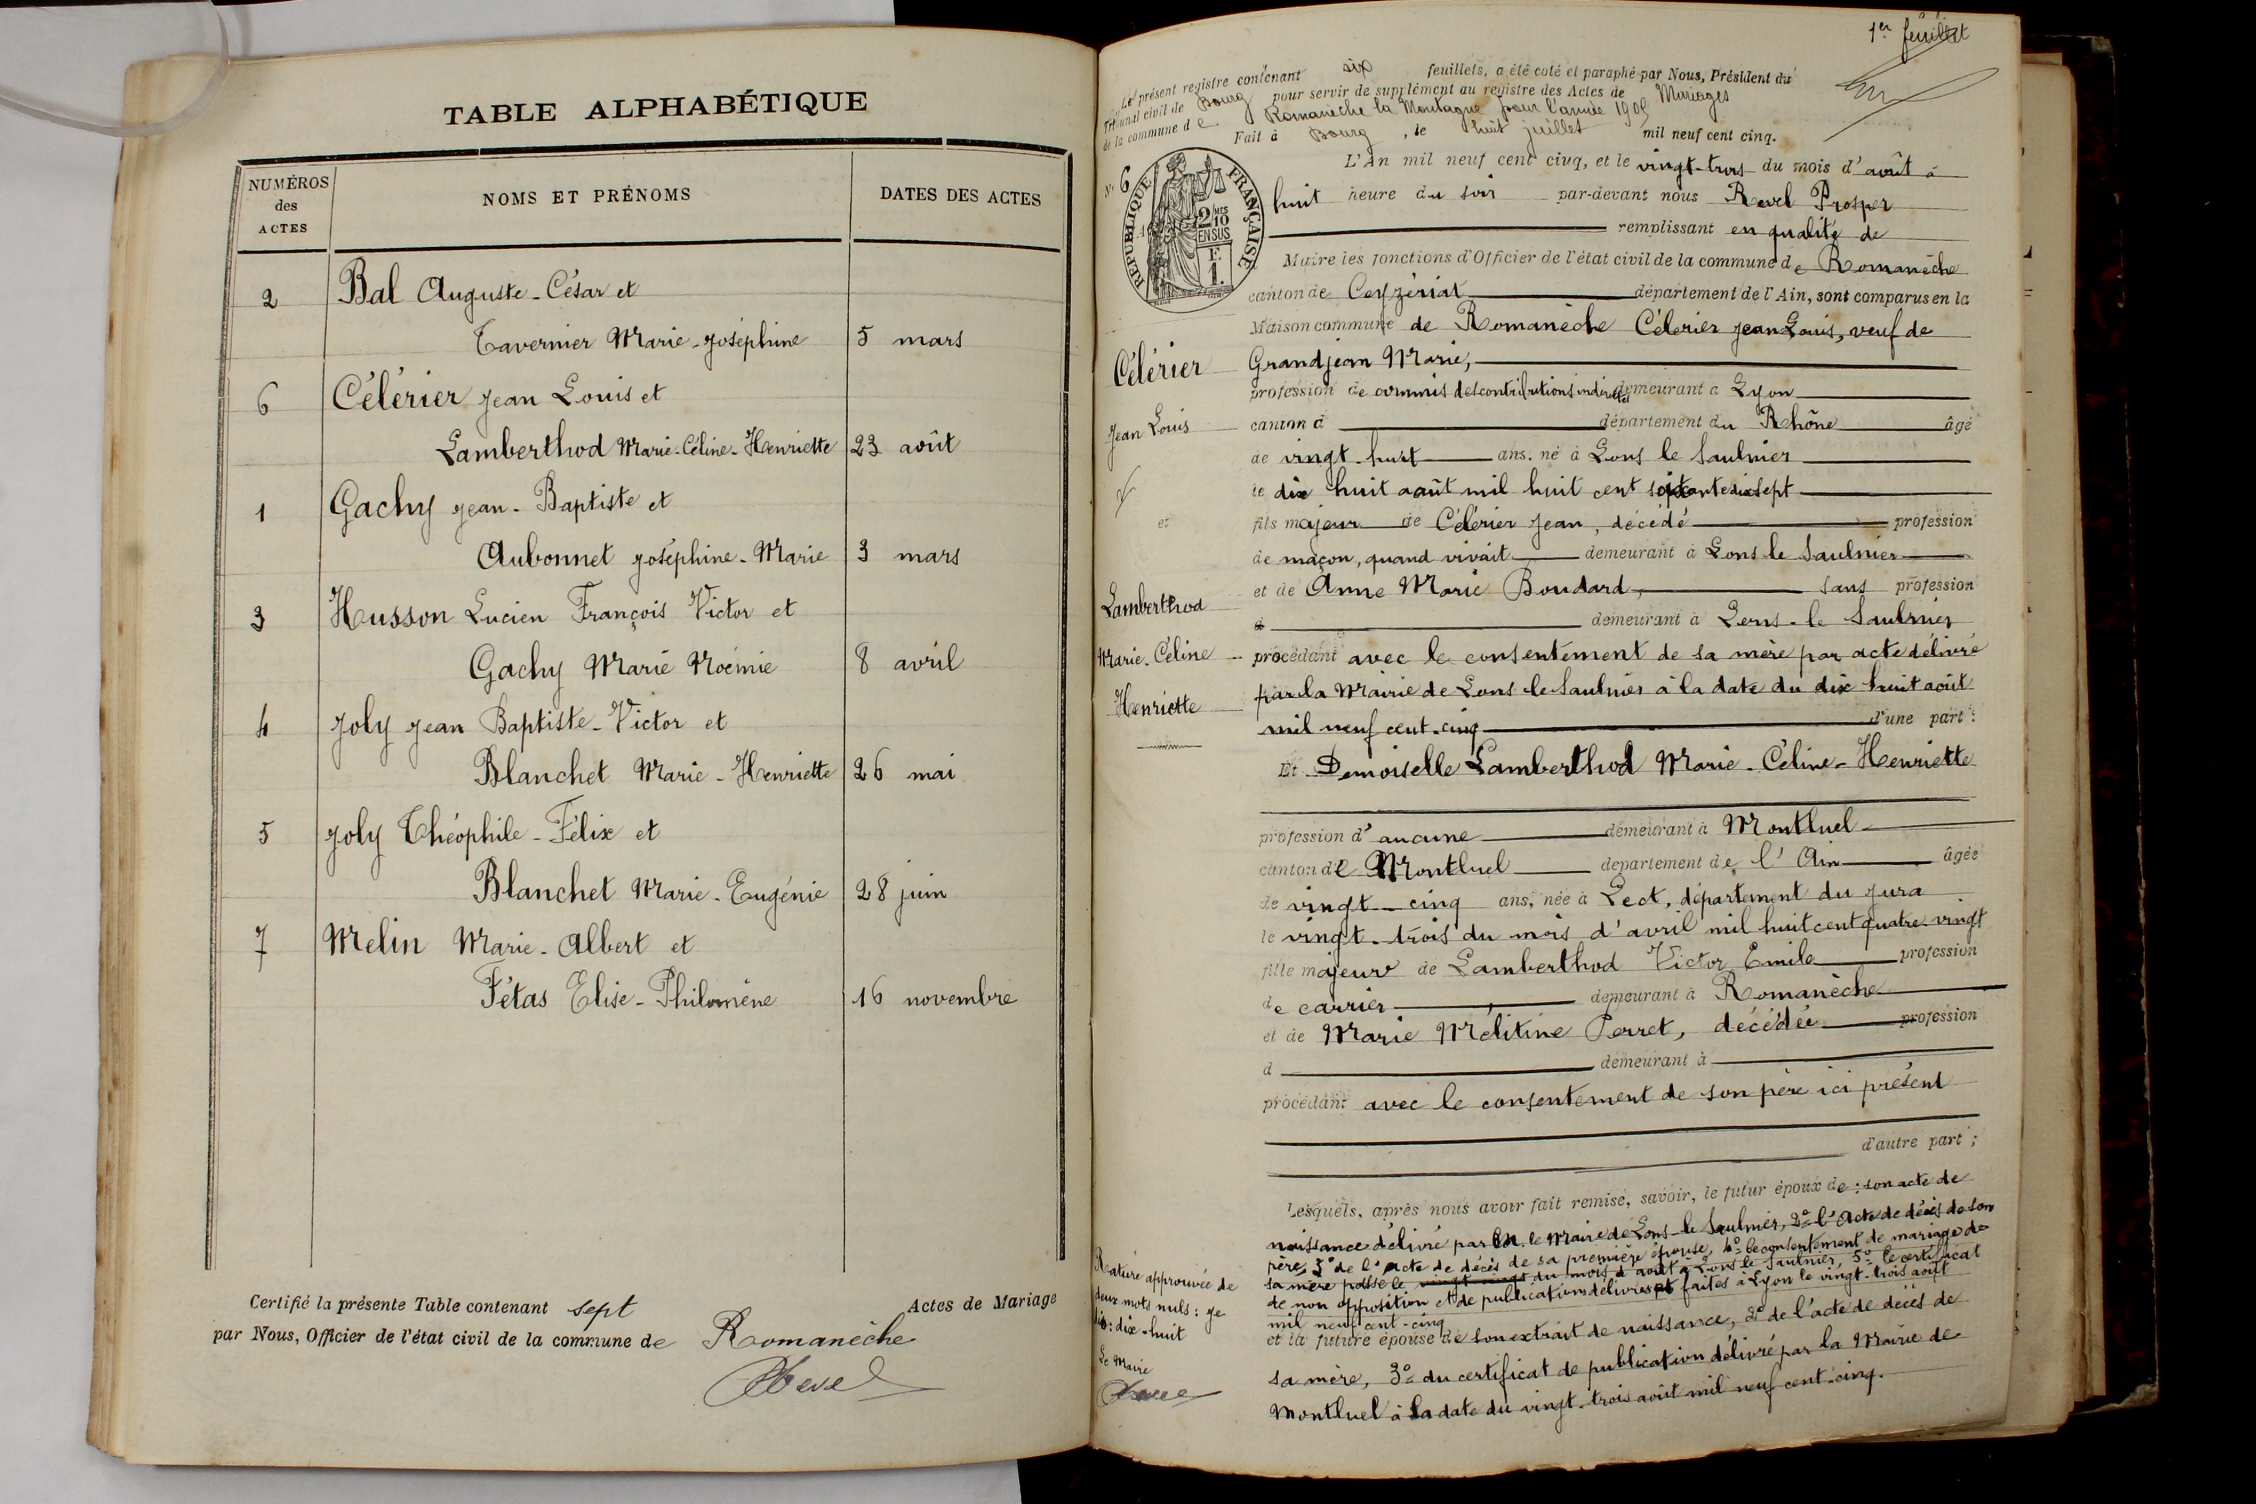 TABLE ALPHABÉTIQUE
NUMÉROS des ACTES
NOMS ET PRÉNOMS
DATES DES ACTES
2 Bal Auguste-César et
Tavernier Marie-Joséphine 5 mars
6 Célérier Jean Louis et
Lamberthod Marie-Céline-Henriette 23 août
1 Gachy Jean-Baptiste et
Aubonnet Joséphine-Marie 3 mars
3 Husson Lucien François Victor et
Gachy Marie Noémie 8 avril
4 Joly Jean Baptiste-Victor et
Blanchet Marie-Henriette 26 mai
5 Joly Théophile-Félix et
Blanchet Marie-Eugénie 28 juin
7 Melin Marie-Albert et
Fétas Elise-Philomène 16 novembre
Certifié la présente Table contenant sept Actes de Mariage
par Nous, Officier de l'état civil de la commune de Romanèche
Revel
1er feuillet
Le présent registre contenant six feuillets, a été coté et paraphé par Nous, Président du
Tribunal civil de Bourg pour servir de supplément au registre des Actes de Mariages
de la commune de Romanèche la Montagne pour l'année 1905
Fait à Bourg, le huit juillet mil neuf cent cinq.
N° 6
RÉPUBLIQUE FRANÇAISE
2/10 EN SUS
F. 1.
L'An mil neuf cent cinq, et le vingt-trois du mois d'août à
huit heure du soir par-devant nous Revel Prosper
remplissant en qualité de
Maire les fonctions d'Officier de l'état civil de la commune de Romanèche
canton de Ceyzériat département de l'Ain, sont comparus en la
Maison commune de Romanèche Célerier Jean Louis, veuf de
Célérier
Grandjean Marie,
profession de commis des contributions indirectes demeurant à Lyon
Jean Louis
canton d département du Rhône âgé
de vingt-huit ans, né à Lons le Saulnier
le dix huit août mil huit cent soixante dix sept
et
fils majeur de Célérier Jean, décédé profession
de maçon, quand vivait demeurant à Lons le Saulnier
et de Anne Marie Boudard, sans profession
Lamberthod
d demeurant à Lons-le Saulnier
Marie-Céline
procédant avec le consentement de sa mère par acte délivré
par la Mairie de Lons le Saulnier à la date du dix huit août
Henriette
mil neuf cent-cinq d'une part :
Et Demoiselle Lamberthod Marie-Céline-Henriette
profession d'aucune demeurant à Montluel
canton de Montluel département de l'Ain âgée
de vingt-cinq ans, née à Lect, département du Jura
le vingt-trois du mois d'avril mil huit cent quatre-vingt
fille majeure de Lamberthod Victor Emile profession
de carrier demeurant à Romanèche
et de Marie Mélitine Perret, décédée profession
d demeurant à
procédant avec le consentement de son père ici présent
d'autre part ;
Lesquels, après nous avoir fait remise, savoir, le futur époux de : son acte de
naissance délivré par M. le Maire de Lons-le Saulnier, 2° l'Acte de décès de son
père, 3° de l'Acte de décès de sa première épouse, 4° le consentement de mariage de
sa mère passé le du mois d'août à Lons le Saulnier, 5° le certificat
de non opposition et de publications délivrés et faites à Lyon le vingt-trois août
mil neuf cent-cinq
et la future épouse de son extrait de naissance, 2° de l'acte de décès de
sa mère, 3° du certificat de publication délivré par la Mairie de
Montluel à la date du vingt-trois août mil neuf cent-cinq.
Rature approuvée de
deux mots nuls :
dix-huit
Le Maire
Revel